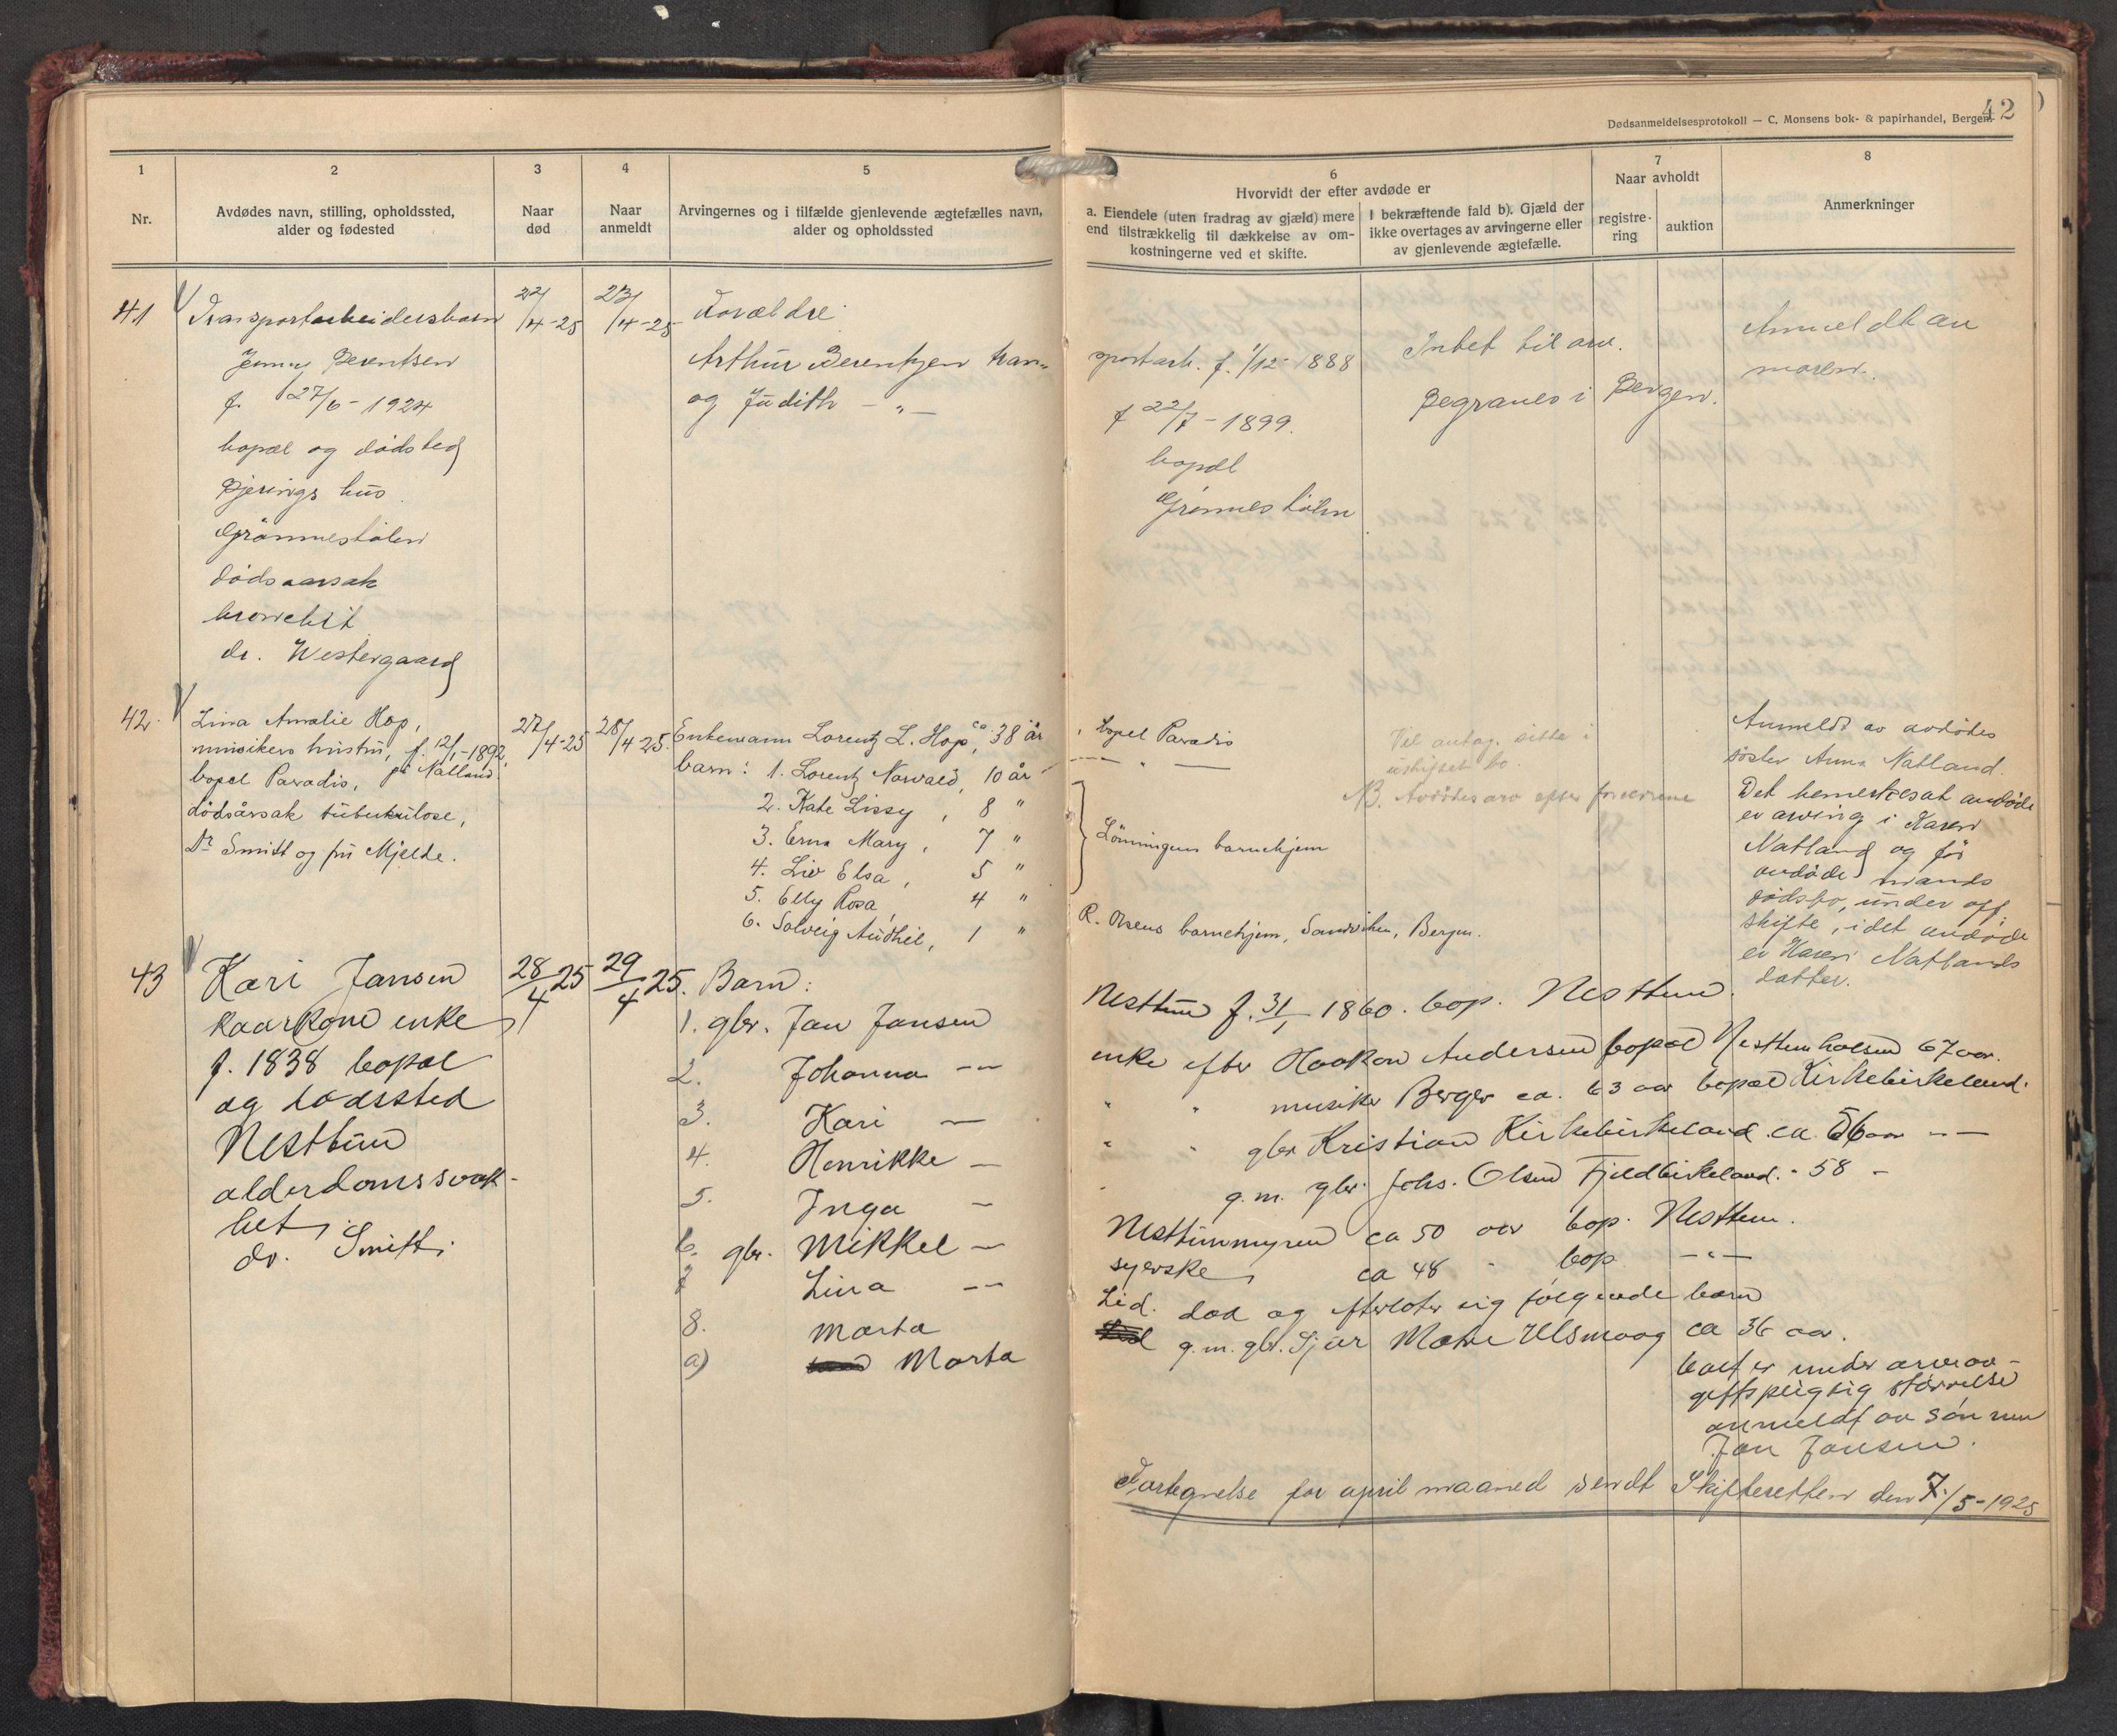 42
Dødsanmeldelsesprotokoll — C. Monsens bok- & papirhandel, Bergen
1
2
3
4
5
Nr.
Avdødes navn, stilling, opholdssted,
alder og fødested
Naar
død
Naar
anmeldt
Arvingernes og i tilfælde gjenlevende ægtefælles navn,
alder og opholdssted
6
Hvorvidt der efter avdøde er
a. Eiendele (uten fradrag av gjæld) mere
end tilstrækkelig til dækkelse av om-
kostningerne ved et skifte.
I bekræftende fald b). Gjæld der
ikke overtages av arvingerne eller
av gjenlevende ægtefælle.
7
Naar avholdt
registre-
ring
auktion
8
Anmerkninger
41
Transportarbeidersbarn
Jenny Berentsen
f. 27/6 - 1924
bopæl og dødsted
Bjerings hus
Grønnestølen
dødsaarsak
bronchit
dr. Westergaard
22/4-25
23/4-25
Forældre
Arthur Berentzen tran-
sportarb. f. 1/12 1888
og Judith - „ -
f 22/7 - 1899.
bopæl
Grønnestølen
Intet til arv.
Begraves i Bergen.
Anmeldt av
moren.
42.
Lina Amalie Hop,
musikers hustru, f. 12/1-1892,
bopel Paradis, på Natland.
dødsårsak tuberkulose,
Dr Smitt og fru Mjelde.
27/4-25
28/4 25.
Enkemann Lorentz L. Hop, ca 38 år
, bopel Paradis
barn: 1. Lorentz Norvald, 10 år
— „ —
2. Kate Lissy, 8 "
3. Erna Mary, 7 "
4. Liv Elsa, 5 "
5. Elly Rosa 4 "
Lønningens barnehjem
6. Solveig Audhil, 1 "
R. Olsens barnehjem, Sandviken, Bergen.
Vil antag. sitte i
uskiftet bo.
NB. Avdødes arv efter foreldrene
Anmeldt av avdødes
søster Anna Natland.
Det bemerkes at avdøde
er arving i Karen
Natland og før
avdøde mands
dødsbo, under off.
skifte, idet avdøde
er Karen Natlands
datter.
43
Kari Jansen
kaarkone enke
f. 1838 bopæl
og dødssted
Nesttun
alderdomssvak-
het,
dr. Smitt.
28/4 25
29/4 25.
Barn:
1. gbr. Jan Jansen
Nesttun f. 31/1 1860. bop. Nesttun.
2. Johanna — „ —
enke efter Haakon Andersen bopæl Nesttunholsen 67 aar.
3. Kari —
" " musiker Berger ca. 63 aar bopæl Kirkebirkeland.
4. Henrikke —
" " gbr Kristian Kirkebirkeland ca. 56 aar — —
5. Inga —
g.m. gbr. Johs. Olsen Fjeldbirkeland. - 58 -
6. gbr. Mikkel —
Nesttunmyren ca 50 aar bop. Nesttun.
7 Lina — —
syerske, ca 48 " bop — „ —
8. Marta
Lid. død og efterlater sig følgende barn
a) Marta
g.m. gbr. Sjur Matre Ulsmaag ca 36 aar.
boet er under arveav-
giftspligtig størrelse
anmeldt av sønnen
Jan Jansen.
Fortegnelse for april maaned sendt Skifteretten den 7/5-1925